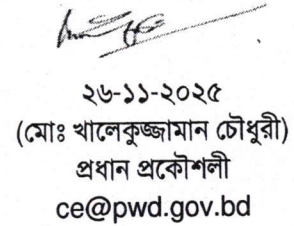 ২৬-১১-২০২৫
(মোঃ খালেকুজ্জামান চৌধুরী)
প্রধান প্রকৌশলী
ce@pwd.gov.bd